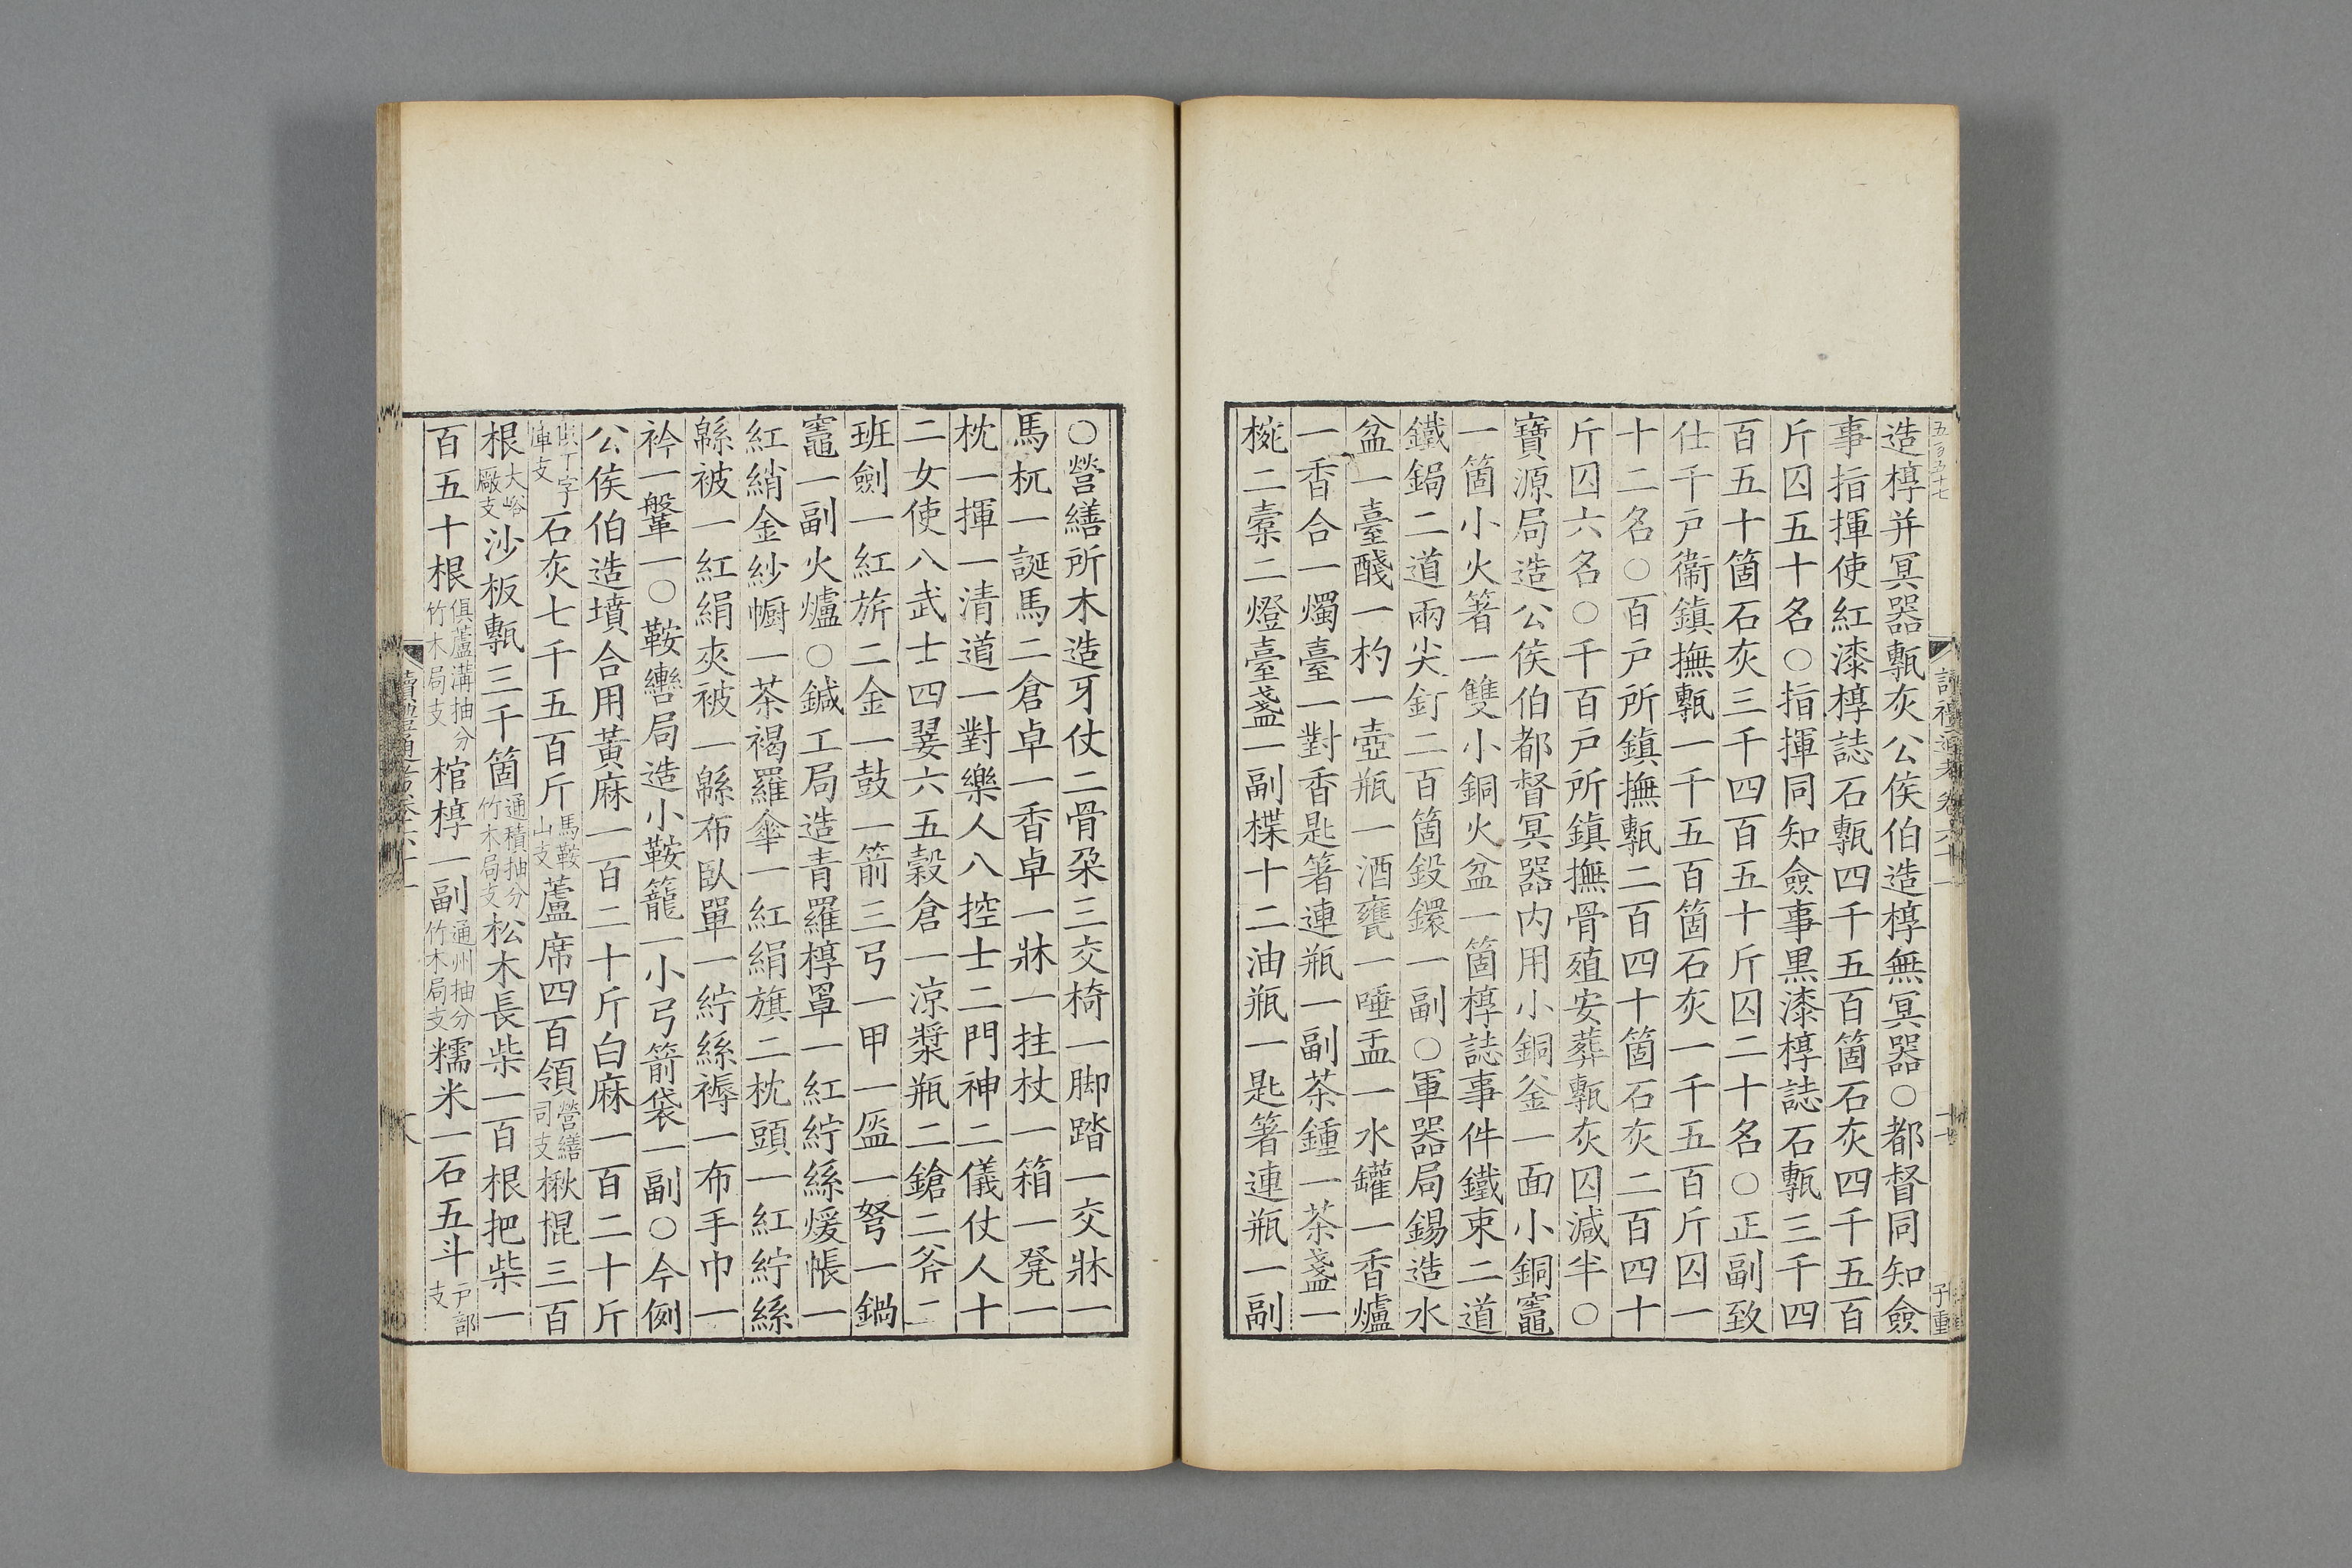 五百五十七
讀禮通考卷六十一
子重
造槨并冥器甎灰公侯伯造槨無冥器○都督同知僉
事指揮使紅漆槨誌石甎四千五百箇石灰四千五百
斤囚五十名○指揮同知僉事黑漆槨誌石甎三千四
百五十箇石灰三千四百五十斤囚二十名○正副致
仕千戸衞鎮撫甎一千五百箇石灰一千五百斤囚一
十二名○百戸所鎮撫甎二百四十箇石灰二百四十
斤囚六名○千百戸所鎮撫骨殖安葬甎灰囚減半○
寶源局造公侯伯都督冥器内用小銅釡一面小銅竈
一箇小火箸一雙小銅火盆一箇槨誌事件鐵束二道
鐵鋦二道兩尖釘二百箇鋑鐶一副○軍器局錫造水
盆一臺醆一杓一壺瓶一酒甕一唾盂一水罐一香爐
一香合一燭臺一對香匙箸連瓶一副茶鍾一茶盞一
椀二橐二燈臺盞一副楪十二油瓶一匙箸連瓶一副
○營繕所木造牙仗二骨朶三交椅一脚踏一交牀一
馬杌一誕馬二倉卓一香卓一牀一拄杖一箱一凳一
枕一揮一清道一對樂人八控士二門神二儀仗人十
二女使八武士四翣六五穀倉一涼漿瓶二鎗二斧二
班劍一紅旂二金一鼓一箭三弓一甲一盔一弩一鍋
竈一副火爐○鍼工局造青羅槨罩一紅紵絲煖帳一
紅綃金紗㡡一茶褐羅傘一紅絹旗二枕頭一紅紵絲
緜被一紅絹夾被一緜布臥單一紵絲褥一布手巾一
衿一鞶一○鞍轡局造小鞍籠一小弓箭袋一副○今例
公侯伯造墳合用黃麻一百二十斤白麻一百二十斤
俱丁字庫支石灰七千五百斤馬鞍山支蘆席四百領營繕司支楸棍三百
根大峪厰支沙板甎三千箇通積抽分竹木局支松木長柴一百根把柴一
百五十根俱蘆溝抽分竹木局支棺槨一副通州抽分竹木局支糯米一石五斗戸部支
讀禮通考卷六十一